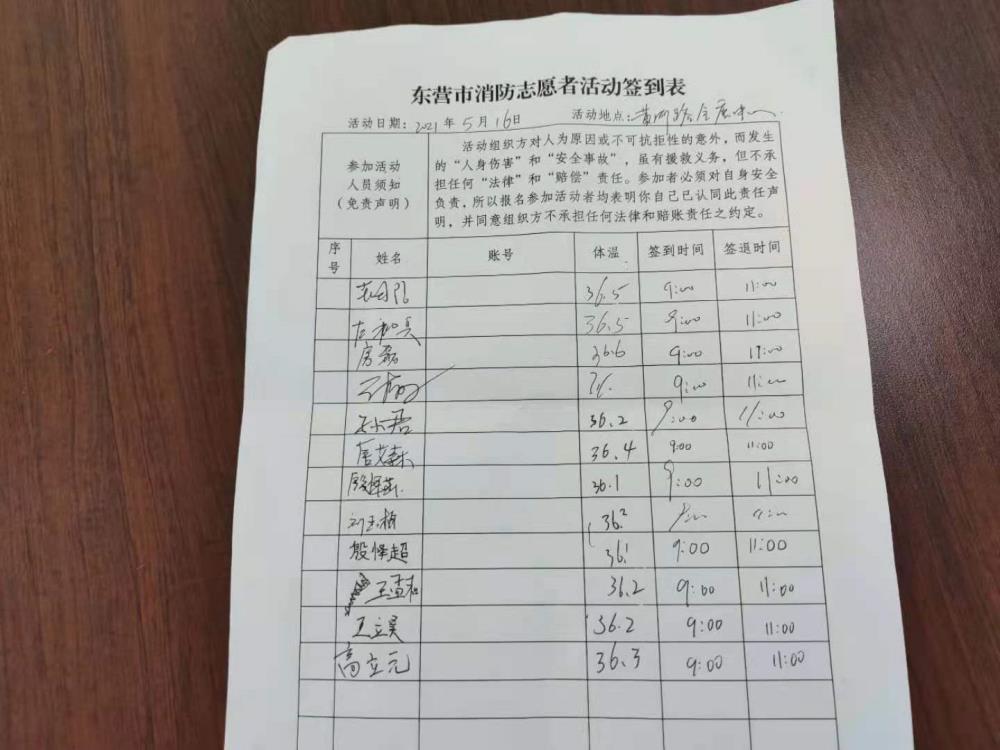 东营市消防志愿者活动签到表
活动日期：2021年5月16日 活动地点：黄河路
参加活动
人员须知
（免责声明）
活动组织方对人为原因或不可抗拒性的意外，而发生
的“人身伤害”和“安全事故”，虽有援救义务，但不承
担任何“法律”和“赔偿”责任。参加者必须对自身安全
负责，所以报名参加活动者均表明你自己已认同此责任声
明，并同意组织方不承担任何法律和赔账责任之约定。
序号 姓名 账号 体温 签到时间 签退时间
36.5 9:00 11:00
36.5 9:00 11:00
房磊 36.6 9:00 11:00
9:00 11:00
36.2 9:00 11:00
36.4 9:00 11:00
36.1 9:00 11:00
36.2
殷怿超 36.1 9:00 11:00
36.2 9:00 11:00
王立昊 36.2 9:00 11:00
高立元 36.3 9:00 11:00